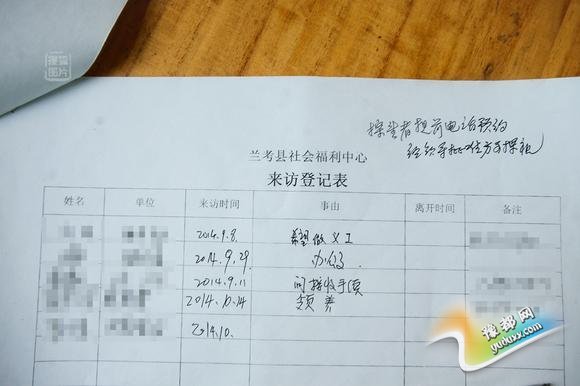 搜狐
图片
探望者提前电话预约
经领导批准方可探视
兰考县社会福利中心
来访登记表
姓名 单位 来访时间 事由 离开时间 备注
2014.9.8. 希望做义工
2014.9.29
2014.9.11
2014.10.14 领养
2014.10.
豫都网
yuduxx.com